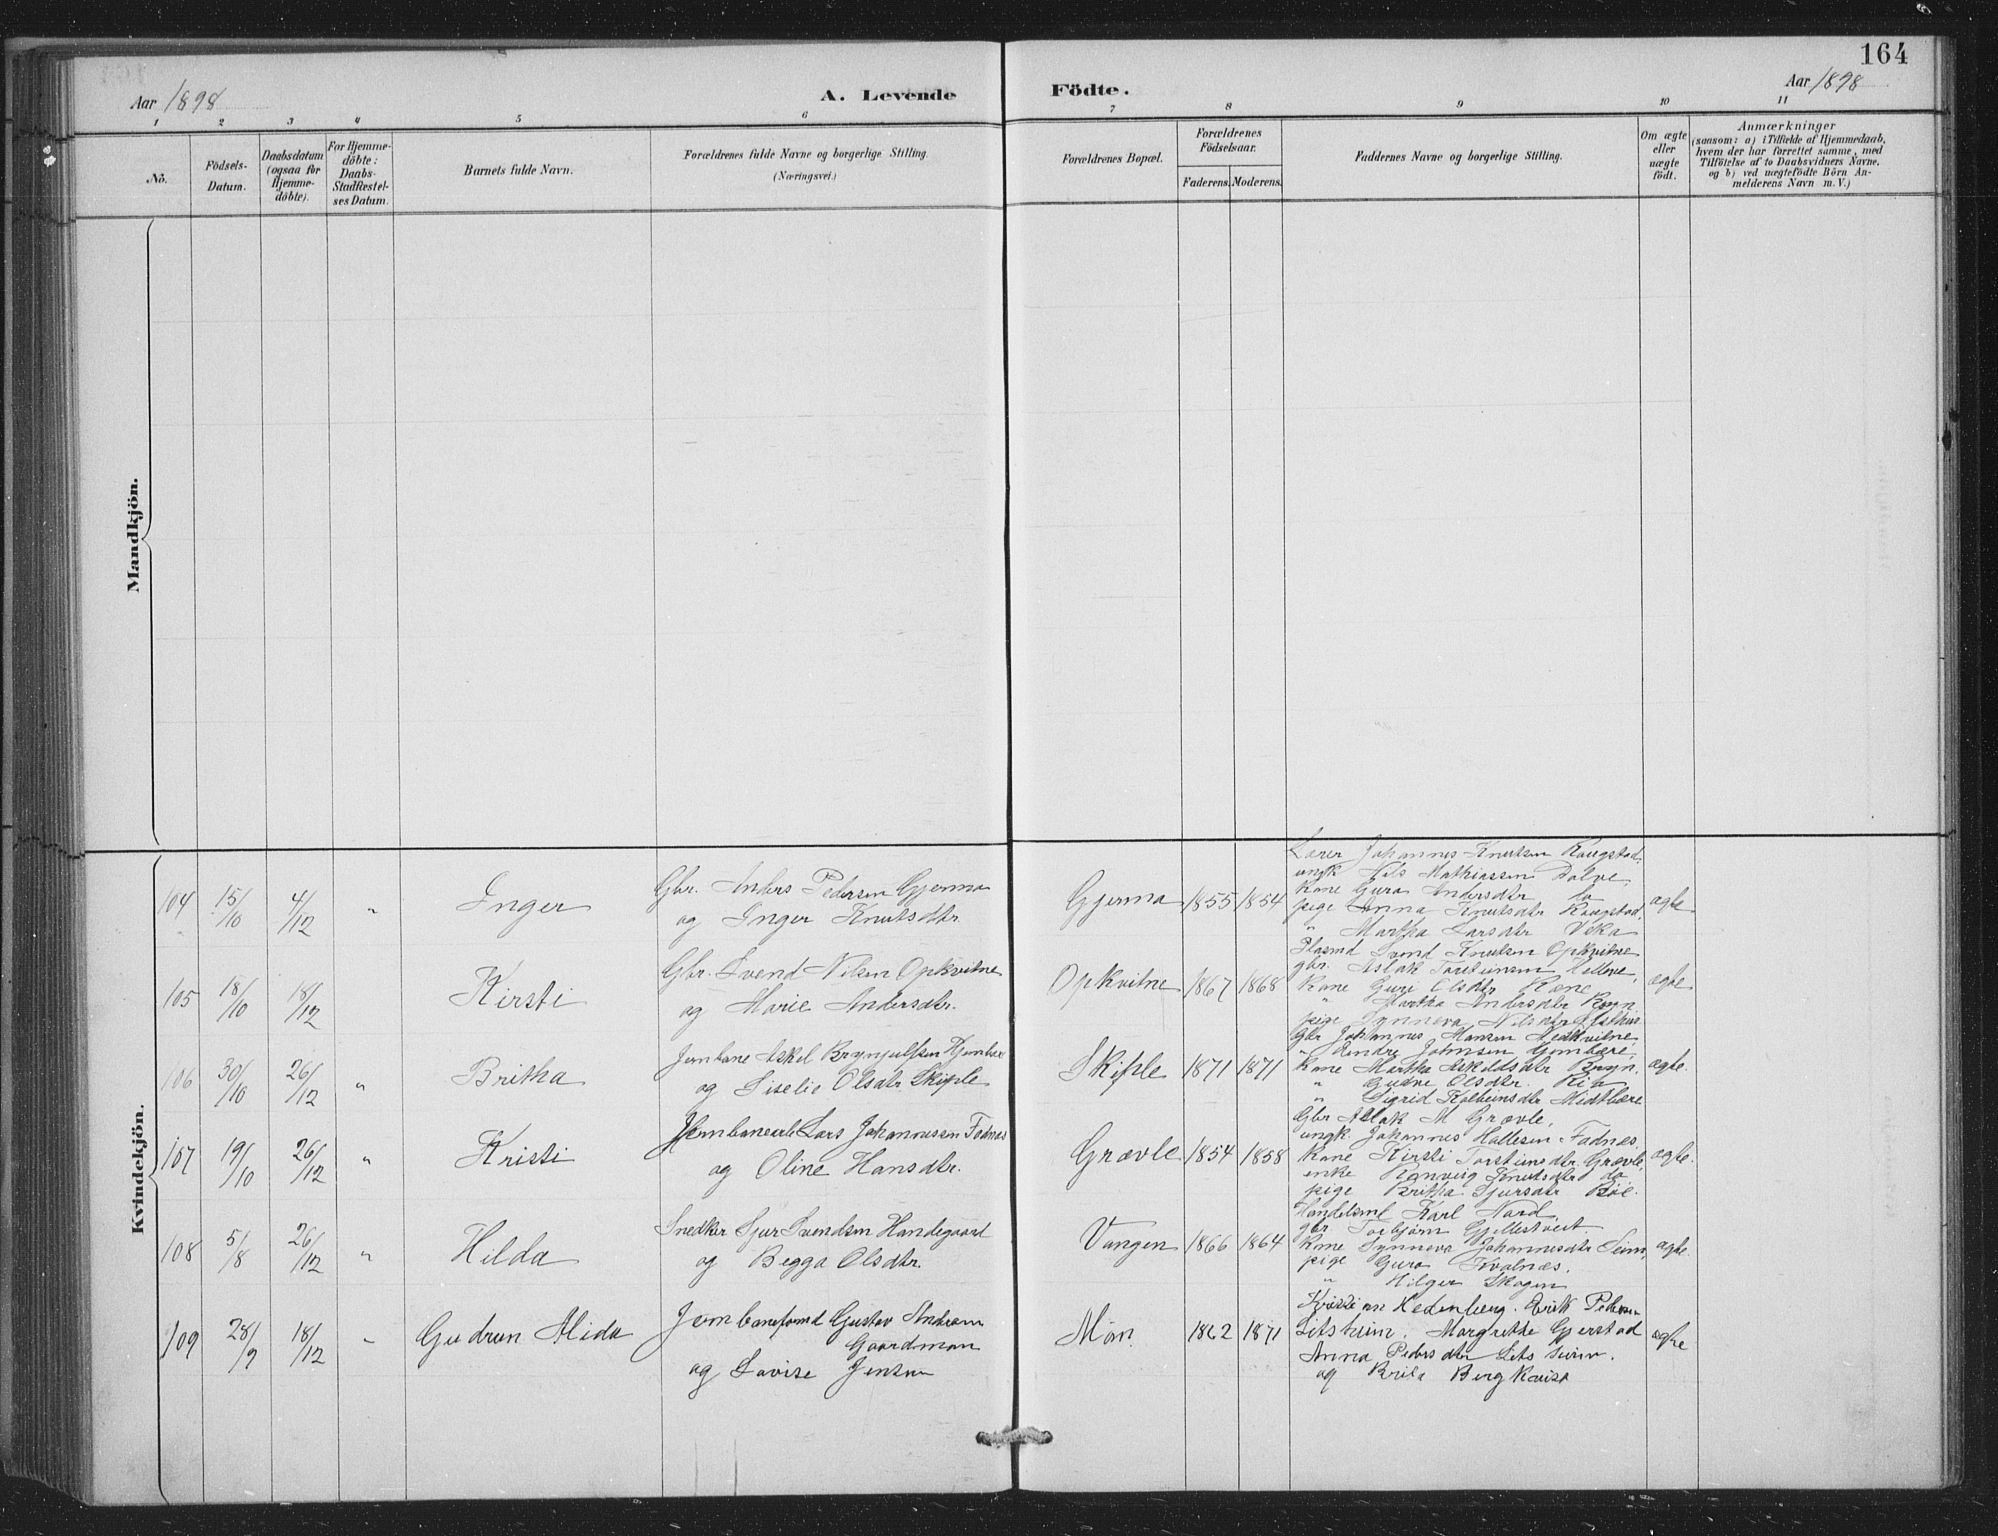 164
Aar 1898
A. Levende
Födte.
Aar 1898
1 2 3 4 5 6 7 8 9 10 11
No.
Födsels-
Datum.
Daabsdatum
(ogsaa for
Hjemme-
döbte).
For Hjemme-
döbte:
Daabs-
Stadfæstel-
ses Datum.
Barnets fulde Navn.
Forældrenes fulde Navne og borgerlige Stilling.
(Næringsvei.)
Forældrenes Bopæl.
Forældrenes
Födselsaar.
Faderens.
Moderens.
Faddernes Navne og borgerlige Stilling.
Om ægte
eller
uægte
födt.
Anmærkninger
(saasom: a) i Tilfælde af Hjemmedaab,
hvem der har forrettet samme, med
Tilföielse af to Daabsvidners Navne,
og b) ved uægtefödte Börn An-
melderens Navn m. V.)
Mandkjön.
Kvindekjön.
104 15/10 4/12 " Inger
Gbr. Anders Pedersen Gjerme
og Inger Knutsdtr.
Gjerma 1855 1854
Lærer Johannes Knutsen Rougstad,
ungk Nils Mathiassen Dolve,
Kone Guro Andersdtr do
pige Anna Knutsdtr Rougstad,
" Martha Larsdtr Vika
ægte
105 18/10 18/12 Kirsti
Gbr. Svend Nilsen Opkvitne
og Marie Andersdtr.
Opkvitne 1867 1868
Plasmd Svend Knutsen Opkvitne
gbr. Aslak Torsteinsen Helleve,
Kone Guri Olsdtr Rene
" Martha Andersdtr Ryn
pige Synneva Nilsdtr
ægte
106 30/10 26/12 " Britha
Jernbane Askel Brynjulfsen
og Siselie Olsdtr Skiple
Skiple 1871 1871
Gbr Johannes Hansen Nedkvitne
" Endre Johnsen
Kone Martha Askildsdtr Ryn,
" Gudve Olsdtr.
" Sigrid Kolbeinsdtr Midtbære
ægte
107 19/10 26/12 " Kristi
Jernbanearb Lars Johannessen Fadnes
og Oline Hansdtr.
Grævle 1854 1858
Gbr Aslak M Grævle,
ungk. Johannes Hallesen Fadnes,
Kone Kirsti Torsteinsdtr. Grævle,
enke Ranveig Knutsdtr do
pige Britha Sjursdtr Böe.
ægte.
108 5/8 26/12 " Hilda
Snedker Sjur Svendsen Handegaard
og Begga Olsdtr.
Vangen 1866 1864
Handelsmd Karl Nord,
gbr. Torbjörn Gjellestveit
Kone Synneva Johannesdtr Seim,
pige Guro Tvalnæs.
" Hilger Skogen
ægte
109 28/9 18/12 " Gudrun Alida
Jernbaneformd Gustav Andreas
Gaardman
og Lovise Jensen
Mön. 1862 1871
Kristian Hedenberg. Erik Pedersen
Margrethe Gjerstad
Anna Pedersdtr
og Brita Bergkvist
ægte